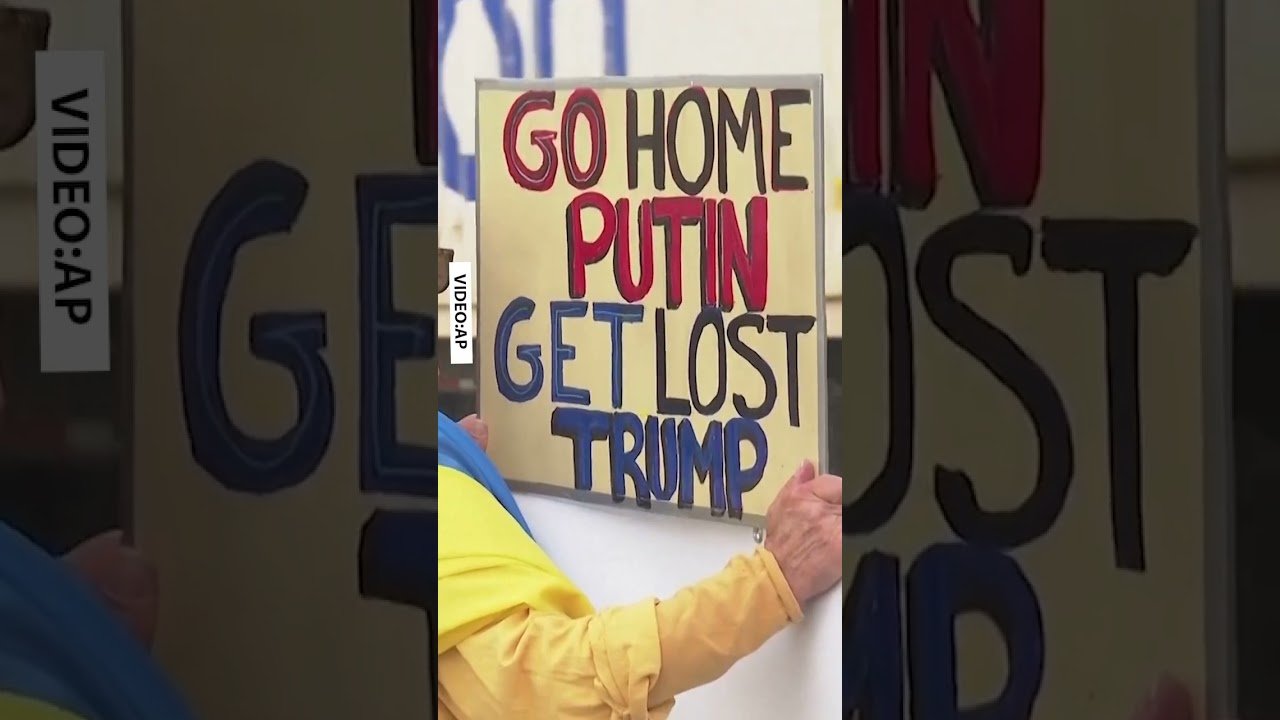 GO HOME
PUTIN
GET LOST
TRUMP
VIDEO:AP
VIDEO:AP